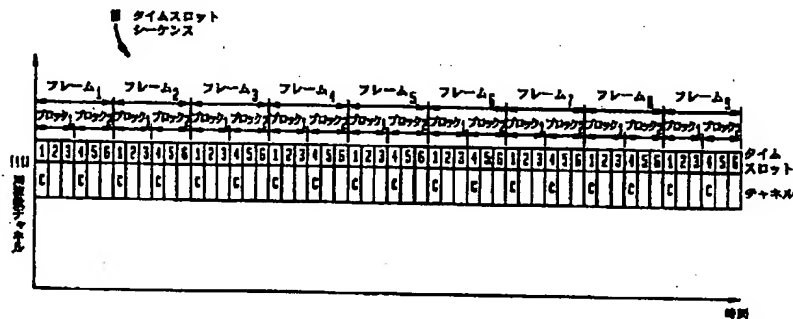 タイムスロット
シーケンス
フレーム1 フレーム2 フレーム3 フレーム4 フレーム5 フレーム6 フレーム7 フレーム8 フレーム9
ブロック1 ブロック2 ブロック1 ブロック2 ブロック1 ブロック2 ブロック1 ブロック2 ブロック1 ブロック2 ブロック1 ブロック2 ブロック1 ブロック2 ブロック1 ブロック2 ブロック1 ブロック2
1 2 3 4 5 6 1 2 3 4 5 6 1 2 3 4 5 6 1 2 3 4 5 6 1 2 3 4 5 6 1 2 3 4 5 6 1 2 3 4 5 6 1 2 3 4 5 6 1 2 3 4 5 6 タイム
スロット
C C C C C C C C C C C C C C C C C C チャネル
時間